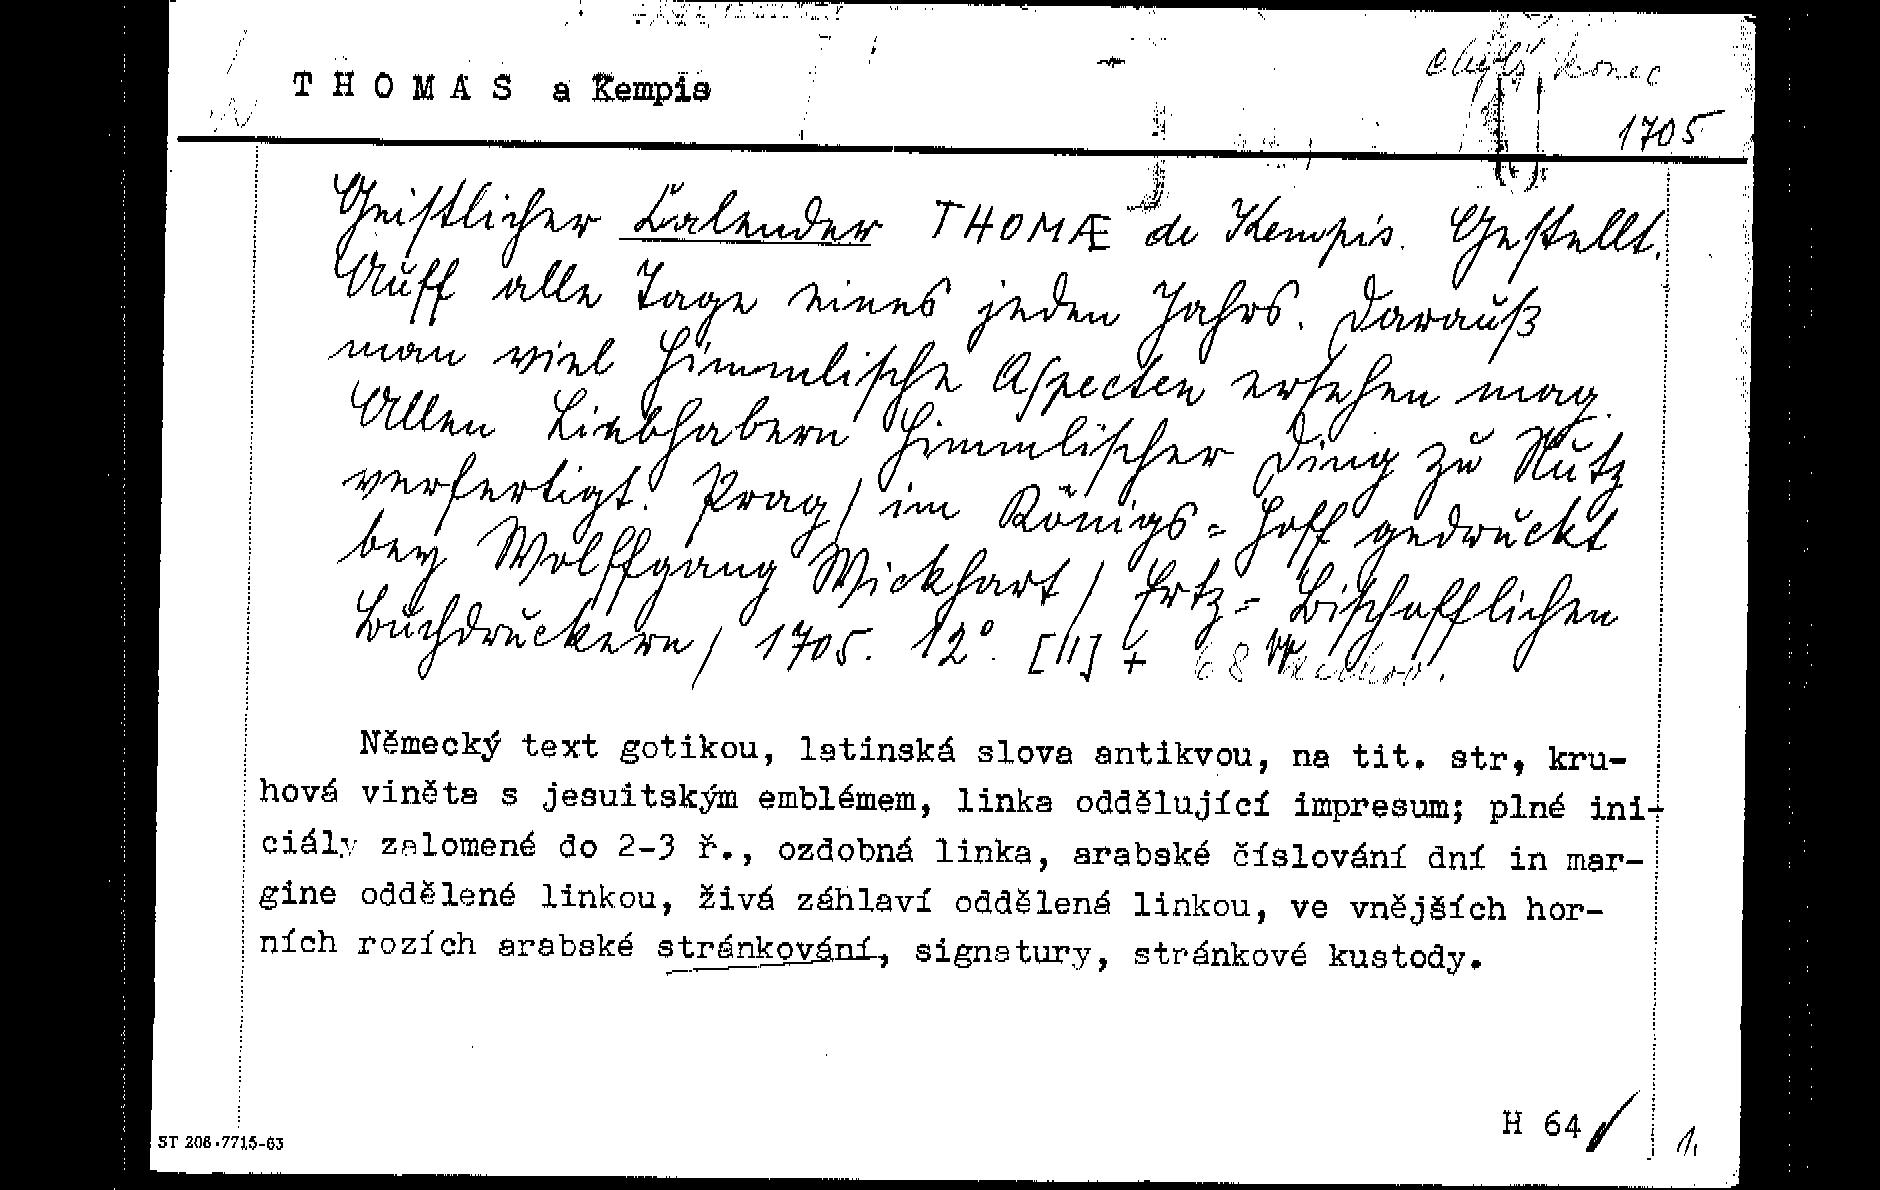 chybí konec
THOMAS a Kempis
1705
Geistlicher Calender THOMÆ de Kempis. Gestellt.
Auff alle Tage eines jeden Jahrs. Darauß
man viel Himmlische Aspecten ersehen mag.
Allen Liebhabern Himmlischer Ding zu Nutz
verfertigt. Prag / im Königs= Hoff gedruckt
bey Wolffgang Wickhart / Ertz= Bischofflichen
Buchdruckern / 1705. 12°. [11] + 68
Německý text gotikou, latinská slova antikvou, na tit. str, kru-
hová viněta s jesuitským emblémem, linka oddělující impresum; plné ini-
ciály zalomené do 2-3 ř., ozdobná linka, arabské číslování dní in mar-
gine oddělené linkou, živá záhlaví oddělená linkou, ve vnějších hor-
ních rozích arabské stránkování, signatury, stránkové kustody.
H 64
1,
ST 208-7715-63